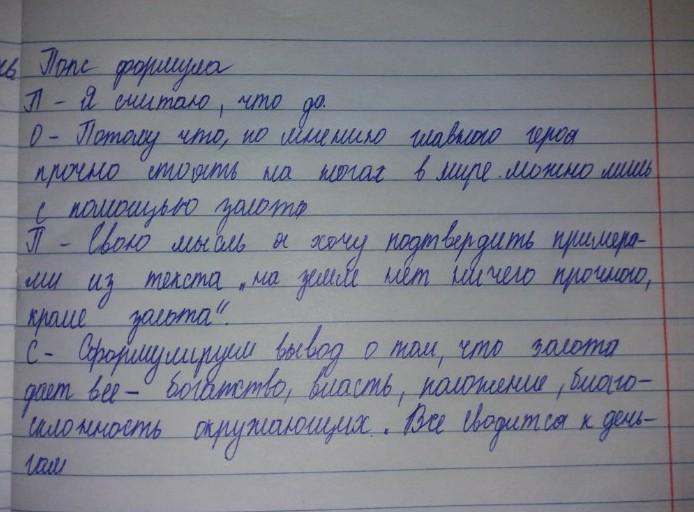 Попс формула
П - Я считаю, что да.
О - Потому что, по мнению главного героя
прочно стоять на ногах в мире можно лишь
с помощью золота
П - Свою мысль я хочу подтвердить примера-
ми из текста „на земле нет ничего прочного,
кроме золота".
С - Сформулируем вывод о том, что золото
дает все - богатство, власть, положение, благо-
склонность окружающих. Все сводится к день-
гам